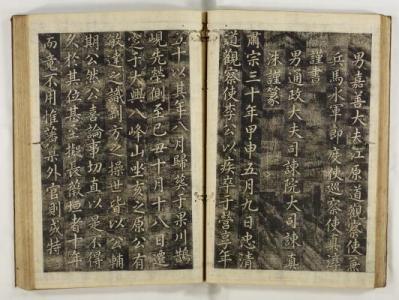 男嘉善大夫江原道觀察使兼
兵馬水軍節度使巡察使眞淳
謹書
男通政大夫司諫院大司諫眞
洙謹篆
肅宗三十年甲申五月九日忠清
道觀察使李公以疾卒于營享年
五十以其年八月歸葬于果川鵲
峴先塋側至己丑十月十八日遷
窆于大興八峰山坐亥之原公有
達之識剛方之操世皆以公輔
期公然公喜論事切直以是不得
久於其位甚至者十年
而竟不用惟藩臬外官則或特